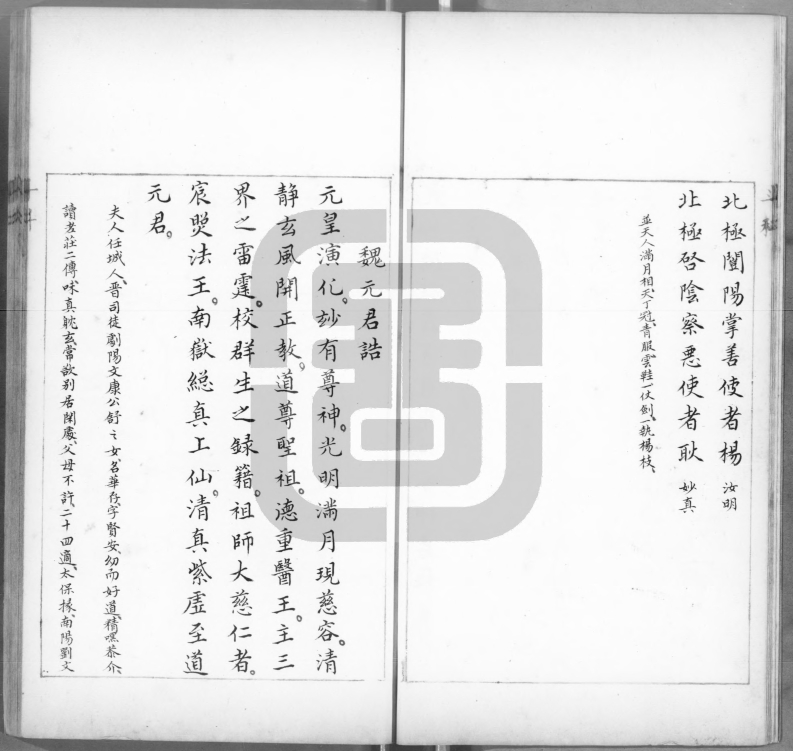 北極闓陽掌善使者楊 汝明
北極啓陰察惡使者耿 妙真
並天人滿月相、天丁冠、青服雲鞋、一仗劍、一執楊枝、
魏元君誥
元皇演化。玅有尊神。光明滿月現慈容。清
靜玄風開正教。道尊聖祖。德重醫王。主三
界之雷霆。校群生之録籍。祖師大慈仁者。
宸煚法王。南嶽緫真工仙。清真紫虛至道
元君。
夫人、任城人、晋司徒劇陽文康公舒之女、名華存、字賢安、幼而好道、精嘿恭介、
讀老莊二傳、味真躭玄、常欲別居閑處、父母不許、二十四適、太保掾、南陽劉文